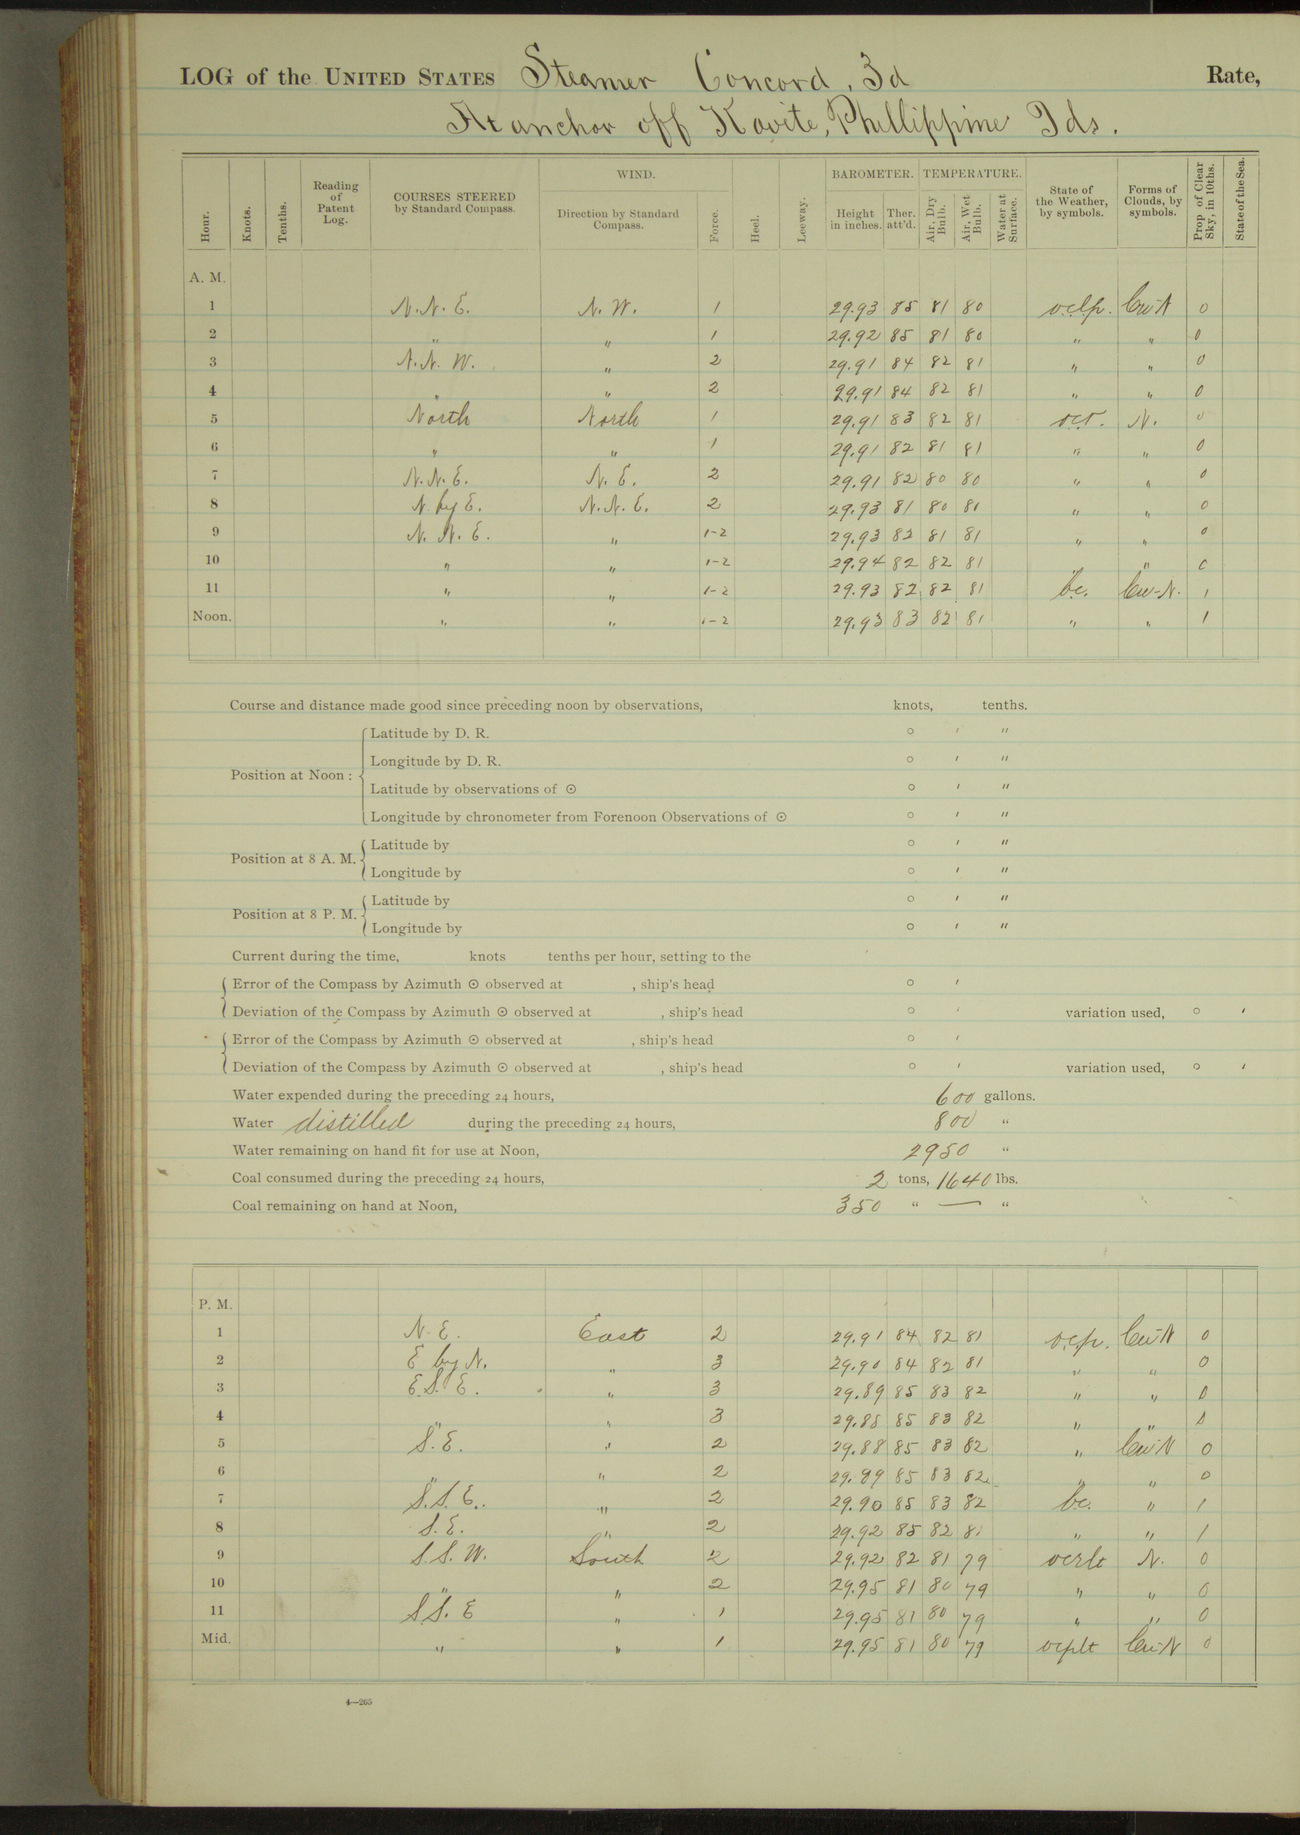 LOG of the UNITED STATES Steamer Concord, 3d Rate,
At anchor off Kavite, Phillippine Ids.
Hour. Knots. Tenths. Reading of Patent Log. COURSES STEERED by Standard Compass. WIND. Direction by Standard Compass. Force. Heel. Leeway. BAROMETER. Height in inches. Ther. att'd. TEMPERATURE. Air, Dry Bulb. Air, Wet Bulb. Water at Surface. State of the Weather, by symbols. Forms of Clouds, by symbols. Prop of Clear Sky, in 10ths. State of the Sea.
A. M.
1 N.N.E. N.W. 1 29.93 85 81 80 o.c.l.p. Cu-N 0
2 " " 1 29.92 85 81 80 " " 0
3 N.N.W. " 2 29.91 84 82 81 " " 0
4 " " 2 29.91 84 82 81 " " 0
5 North North 1 29.91 83 82 81 N. 0
6 " " 1 29.91 82 81 81 " " 0
7 N.N.E. N.E. 2 29.91 82 80 80 " " 0
8 N by E. N.N.E. 2 29.93 81 80 80 " " 0
9 N.N.E. " 1-2 29.93 82 81 81 " " 0
10 " " 1-2 29.94 82 82 81 " " 0
11 " " 1-2 29.93 82 82 81 b.c. Cu-N. 1
Noon. " " 1-2 29.93 83 82 81 " " 1
Course and distance made good since preceding noon by observations, knots, tenths.
Position at Noon: Latitude by D. R. ° ′ ″
Longitude by D. R. ° ′ ″
Latitude by observations of ⊙ ° ′ ″
Longitude by chronometer from Forenoon Observations of ⊙ ° ′ ″
Position at 8 A. M. Latitude by ° ′ ″
Longitude by ° ′ ″
Position at 8 P. M. Latitude by ° ′ ″
Longitude by ° ′ ″
Current during the time, knots tenths per hour, setting to the
Error of the Compass by Azimuth ⊙ observed at , ship's head ° ′
Deviation of the Compass by Azimuth ⊙ observed at , ship's head ° ′ variation used, ° ′
Error of the Compass by Azimuth ⊙ observed at , ship's head ° ′
Deviation of the Compass by Azimuth ⊙ observed at , ship's head ° ′ variation used, ° ′
Water expended during the preceding 24 hours, 600 gallons.
Water distilled during the preceding 24 hours, 800 "
Water remaining on hand fit for use at Noon, 2950 "
Coal consumed during the preceding 24 hours, 2 tons, 1640 lbs.
Coal remaining on hand at Noon, 350 " — "
P. M.
1 N.E. East 2 29.91 84 82 81 o.c.p. Cu-N 0
2 E by N. " 3 29.90 84 82 81 " " 0
3 E.S.E. " 3 29.89 85 83 82 " " 0
4 " " 3 29.88 85 83 82 " "
5 S.E. " 2 29.88 85 83 82 " Cu-N 0
6 " " 2 29.89 85 83 82 " " 0
7 S.S.E. " 2 29.90 85 83 82 b.c. " 1
8 S.E. " 2 29.92 85 82 81 " " 1
9 S.S.W. South 2 29.92 82 81 79 ocrlt N. 0
10 " " 2 29.95 81 80 79 " " 0
11 S.S.E " 1 29.95 81 80 79 " " 0
Mid. " " 1 29.95 81 80 79 ocplt Cu-N 0
4—265